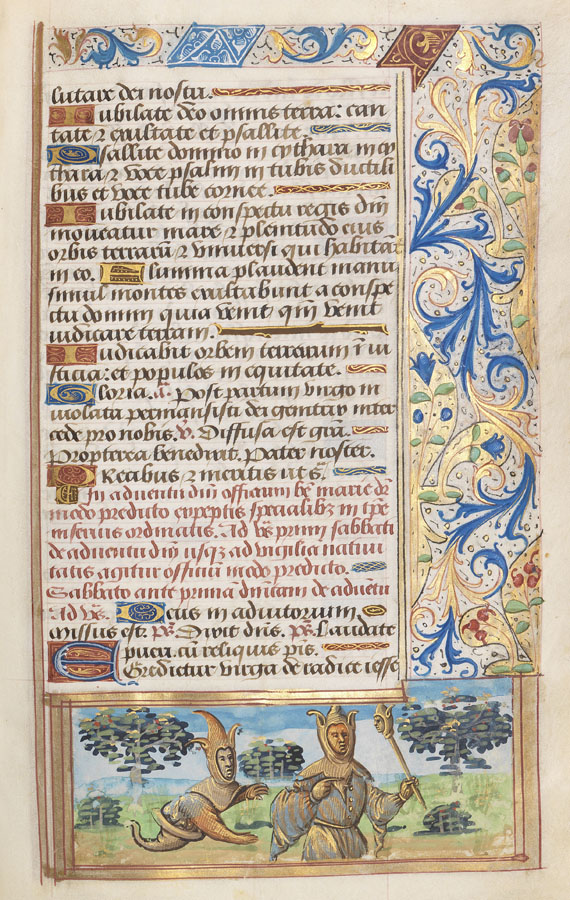 lutare dei nostri.
Iubilate deo omnis terra: can
tate ⁊ exultate et psallite.
Psallite domino in cythara in cy
thara ⁊ voce psalmi in tubis ductili
bus et voce tube cornee.
Iubilate in conspectu regis dnī
moveatur mare ⁊ plenitudo eius
orbis terrarū ⁊ universi qui habitāt
in eo. Flumina plaudent manu
simul montes exultabunt a conspe
ctu domini quia venit qm̄ venit
iudicare terram.
Iudicabit orbem terrarum ī iu
sticia: et populos in equitate.
Gloria. Post partum virgo in
violata permansisti dei genitrix inter
cede pro nobis. v̄. Diffusa est grā.
Propterea benedixit. Pater noster.
Precibus ⁊ meritis ut s̄.
In adventu dnī officium bē marie dr̄
modo predicto exceptis specialibꝫ in ipē
insertis ordinatis. Ad vēs primi sabbati
de adventu dnī usqꝫ ad vigiliā nativi
tatis agitur officiū modo predicto.
Sabbato ante primā dnīcam de adventu
Ad vēs. Deus in adiutorium
Missus est. ps̄. Dixit dns̄. ps̄. Laudate
pueri. cū reliquis pīs.
Egredietur virga de radice iesse